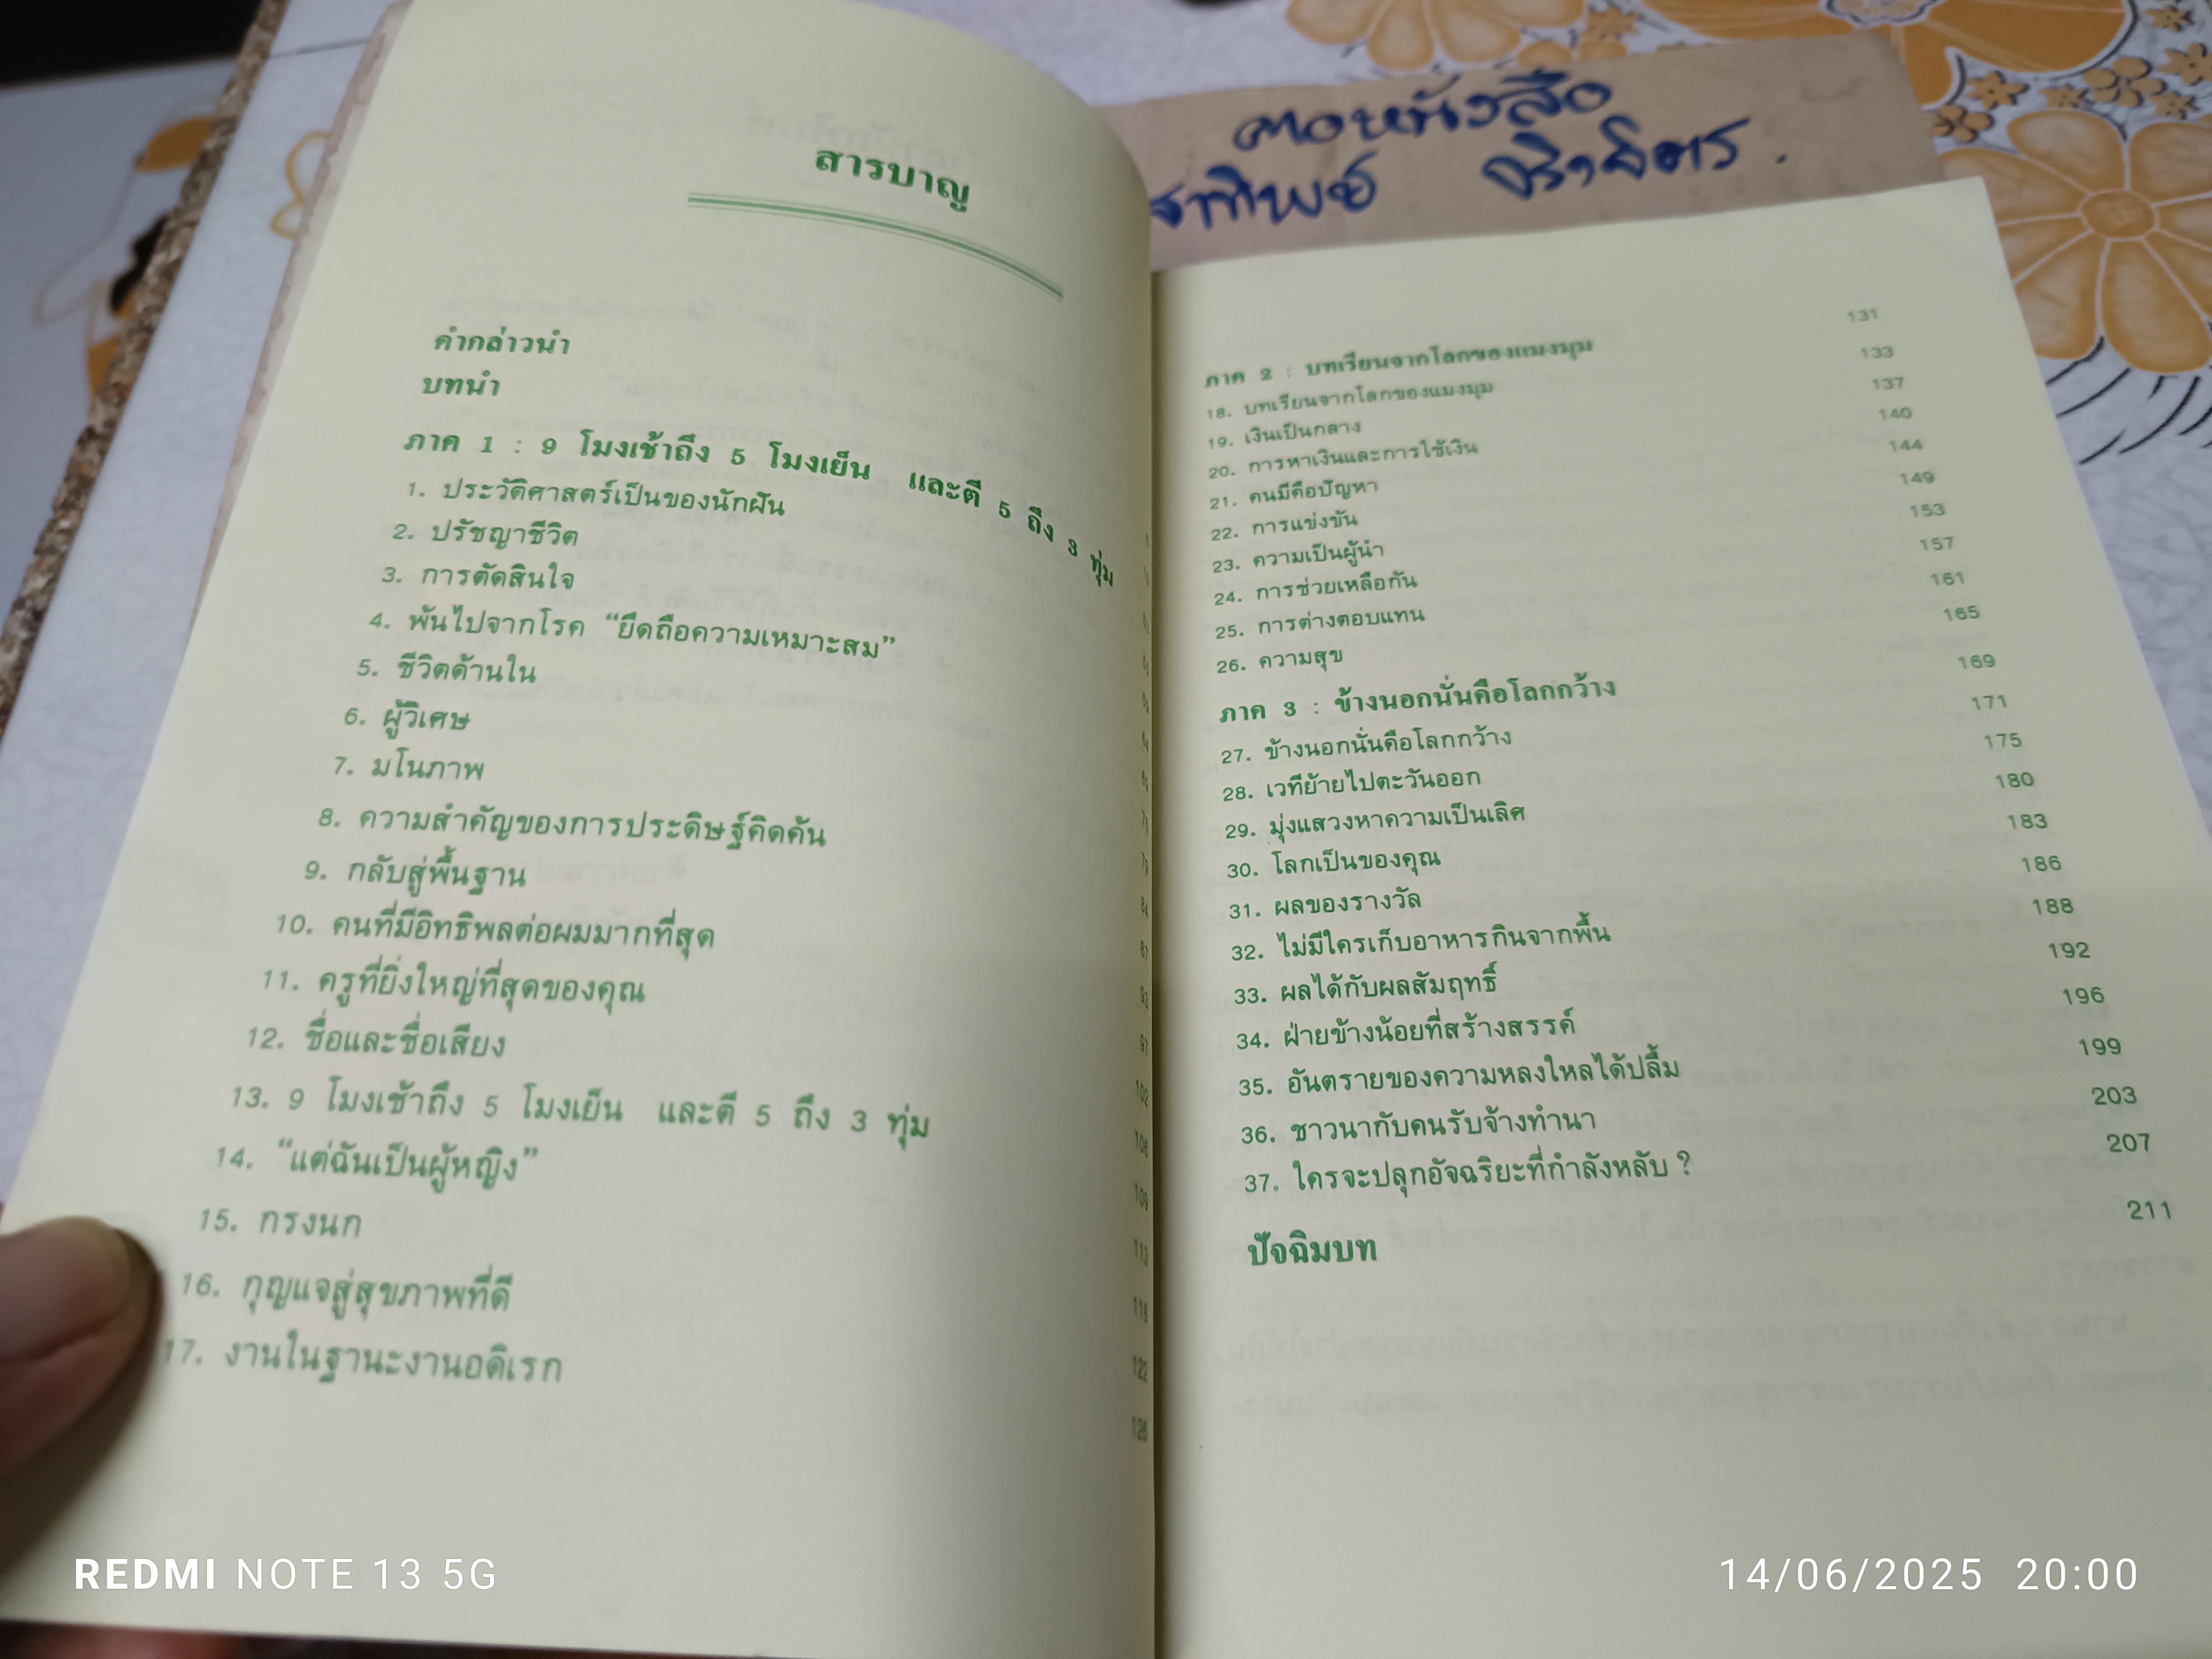 สารบาญ
คำกล่าวนำ
บทนำ
ภาค 1 : 9 โมงเช้าถึง 5 โมงเย็น และตี 5 ถึง 3 ทุ่ม
1. ประวัติศาสตร์เป็นของนักฝัน
2. ปรัชญาชีวิต
3. การตัดสินใจ
4. พ้นไปจากโรค “ยึดถือความเหมาะสม”
5. ชีวิตด้านใน
6. ผู้วิเศษ
7. มโนภาพ
8. ความสำคัญของการประดิษฐ์คิดค้น
9. กลับสู่พื้นฐาน
10. คนที่มีอิทธิพลต่อผมมากที่สุด
11. ครูที่ยิ่งใหญ่ที่สุดของคุณ
12. ชื่อและชื่อเสียง
13. 9 โมงเช้าถึง 5 โมงเย็น และตี 5 ถึง 3 ทุ่ม
14. “แต่ฉันเป็นผู้หญิง”
15. กรงนก
16. กุญแจสู่สุขภาพที่ดี
17. งานในฐานะงานอดิเรก
87
93
97
102
106
109
113
118
122
126
คอหนังสือ
ภาค 2 : บทเรียนจากโลกของแมงมุม 131
18. บทเรียนจากโลกของแมงมุม 133
19. เงินเป็นกลาง 137
20. การหาเงินและการใช้เงิน 140
21. คนมีคือปัญหา 144
22. การแข่งขัน 149
23. ความเป็นผู้นำ 153
24. การช่วยเหลือกัน 157
25. การต่างตอบแทน 161
26. ความสุข 165
ภาค 3 : ข้างนอกนั่นคือโลกกว้าง 169
27. ข้างนอกนั่นคือโลกกว้าง 171
28. เวทีย้ายไปตะวันออก 175
29. มุ่งแสวงหาความเป็นเลิศ 180
30. โลกเป็นของคุณ 183
31. ผลของรางวัล 186
32. ไม่มีใครเก็บอาหารกินจากพื้น 188
33. ผลได้กับผลสัมฤทธิ์ 192
34. ฝ่ายข้างน้อยที่สร้างสรรค์ 196
35. อันตรายของความหลงใหลได้ปลื้ม 199
36. ชาวนากับคนรับจ้างทำนา 203
37. ใครจะปลุกอัจฉริยะที่กำลังหลับ ? 207
ปัจฉิมบท 211
REDMI NOTE 13 5G
14/06/2025 20:00